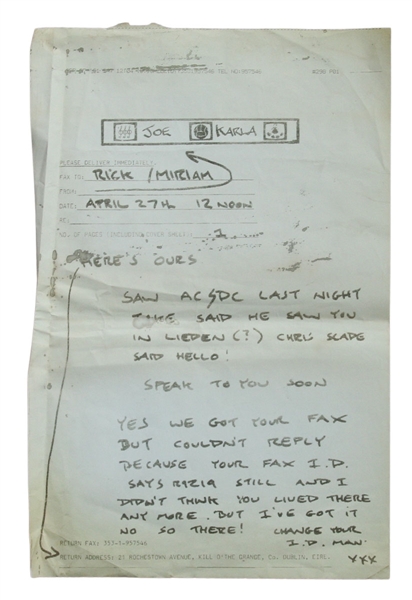 JOE KARLA
PLEASE DELIVER IMMEDIATELY.
FAX TO: RICK / MIRIAM
FROM:
DATE: APRIL 27th 12 NOON
RE:
NO. OF PAGES (INCLUDING COVER SHEET): 1
HERE'S OURS
SAW AC/DC LAST NIGHT
SAID HE SAW YOU
IN LIEDEN (?) CHRIS SLADE
SAID HELLO!
SPEAK TO YOU SOON
YES WE GOT YOUR FAX
BUT COULDN'T REPLY
BECAUSE YOUR FAX I.D.
SAYS STILL AND I
DIDN'T THINK YOU LIVED THERE
ANY MORE. BUT I'VE GOT IT
NO SO THERE! CHANGE YOUR
I.D. MAN.
RETURN FAX: 353-1-957546
RETURN ADDRESS: 21 ROCHESTOWN AVENUE, KILL O'THE GRANGE, Co. DUBLIN, EIRE.
XXX